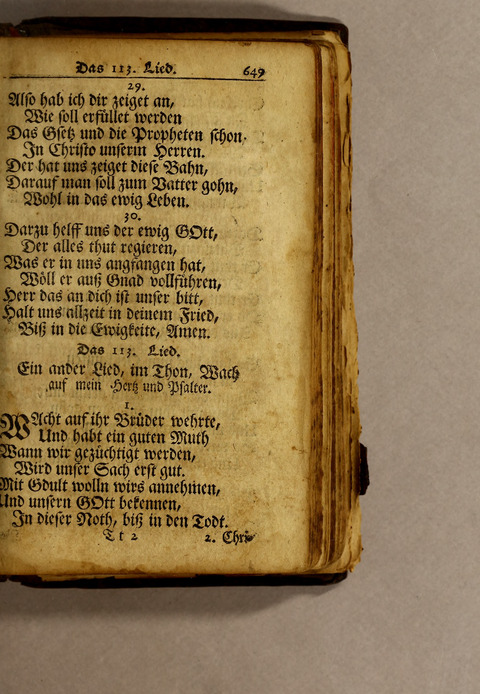 Das 113. Lied. 649
29.
Also hab ich dir zeiget an,
Wie soll erfüllet werden
Das Gsetz und die Propheten schon
In Christo unserm Herren.
Der hat uns zeiget diese Bahn,
Darauf man soll zum Vatter gohn,
Wohl in das ewig Leben.
30.
Darzu helff uns der ewig GOtt,
Der alles thut regieren,
Was er in uns angfangen hat,
Wöll er auß Gnad vollführen,
Herr das an dich ist unser bitt,
Halt uns allzeit in deinem Fried,
Biß in die Ewigkeite, Amen.
Das 113. Lied.
Ein ander Lied, im Thon, Wach
auf mein Hertz und Psalter.
1.
WAcht auf ihr Brüder wehrte,
Und habt ein guten Muth
Wann wir gezüchtigt werden,
Wird unser Sach erst gut.
Mit Gdult wolln wirs annehmen,
Und unsern GOtt bekennen,
In dieser Noth, biß in den Todt.
Tt 2 2. Chri-